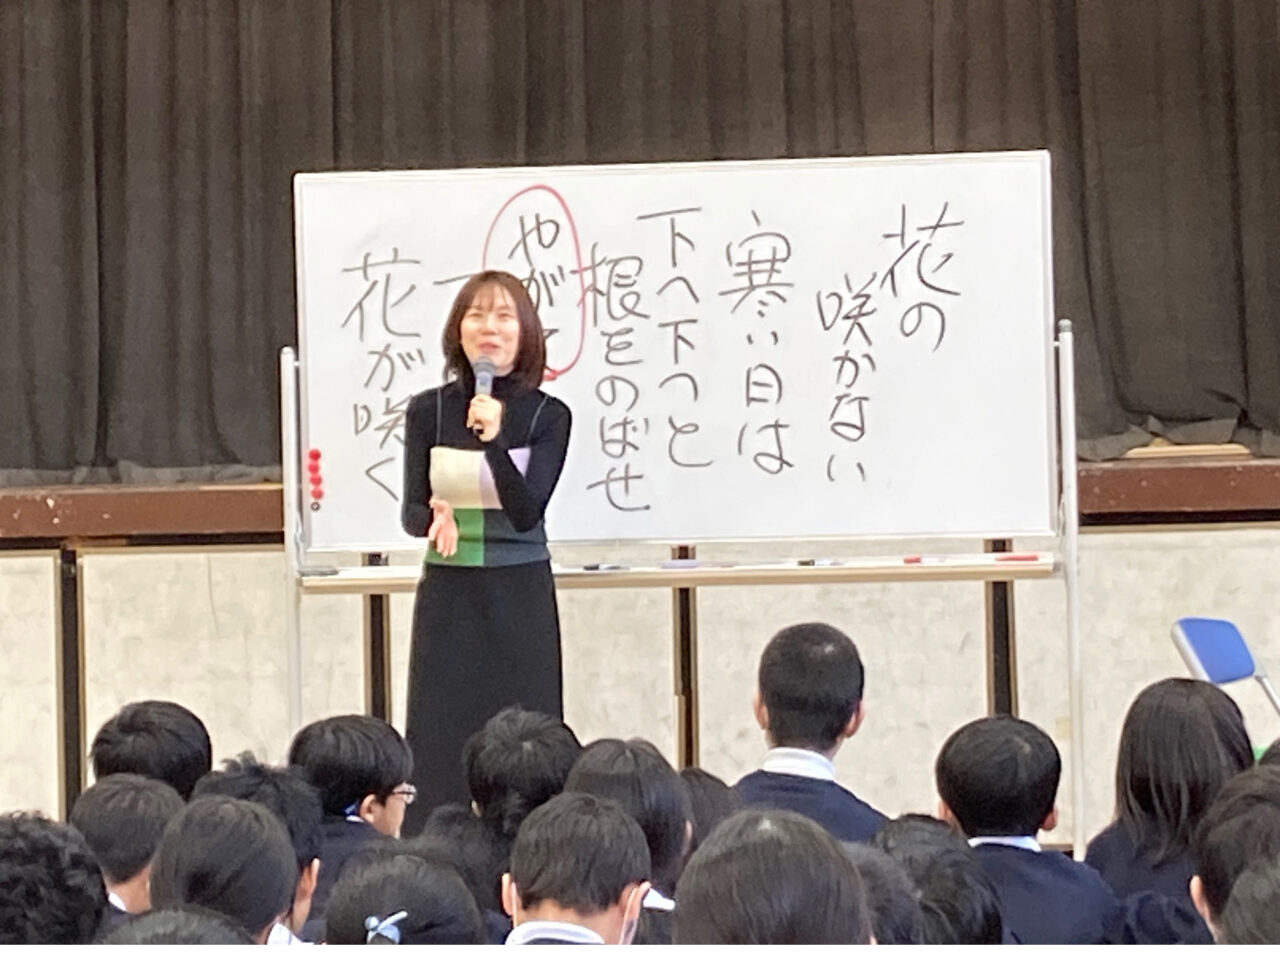 花の
咲かない
寒い日は
下へ下へと
根をのばせ
やが
花が咲く